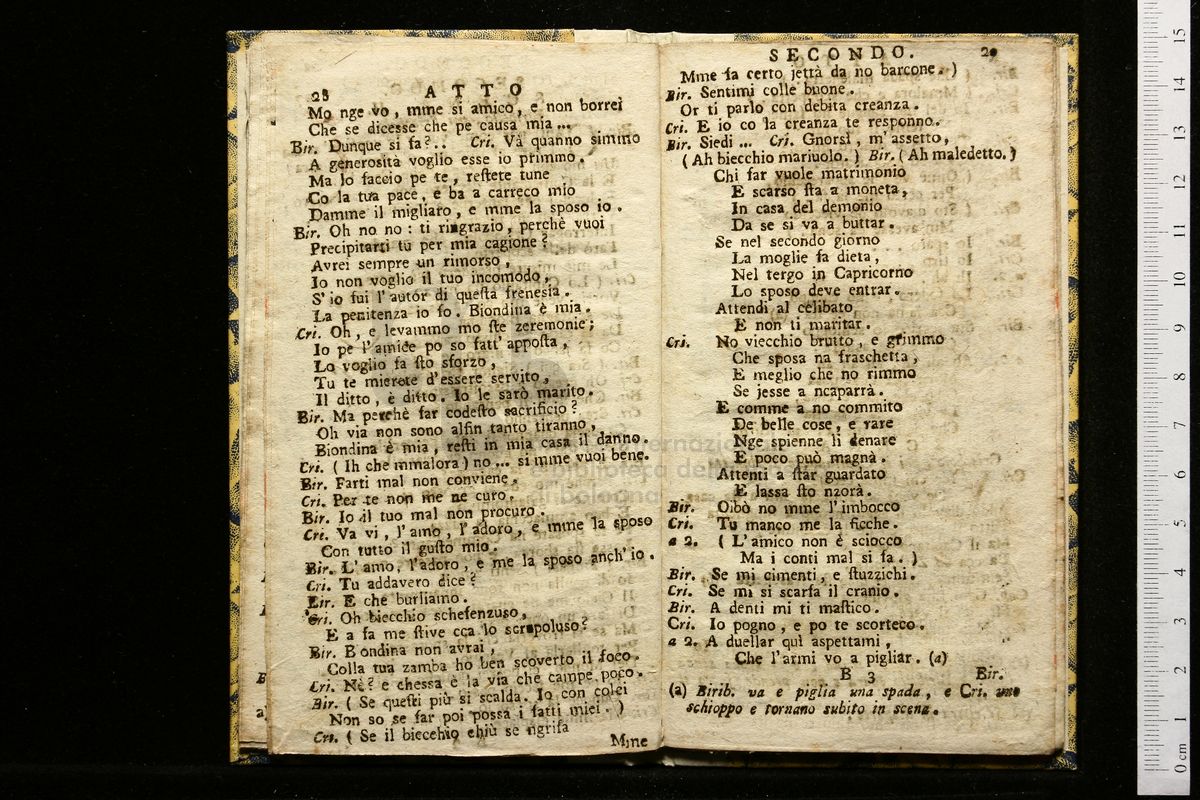 28 ATTO
Mo nge vo, mme si amico, e non borrei
Che se dicesse che pe causa mia ...
Bir. Dunque si fa?.. Cri. Và quanno simmo
A generosità voglio esse io primmo.
Ma lo faccio pe te, restete tune
Co la tua pace, e ba a carreco mio
Damme il migliaro, e mme la sposo io.
Bir. Oh no no: ti ringrazio, perchè vuoi
Precipitarti tu per mia cagione?
Avrei sempre un rimorso,
Io non voglio il tuo incomodo,
S'io fui l'autor di questa frenesia.
La penitenza io fo. Biondina è mia.
Cri. Oh, e levammo mo ste zeremonie;
Io pe l'amice po so fatt'apposta,
Lo voglio fa sto sforzo,
Tu te mierete d'essere servito,
Il ditto, è ditto. Io le sarò marito.
Bir. Ma perchè far codesto sacrificio?
Oh via non sono alfin tanto tiranno,
Biondina è mia, resti in mia casa il danno.
Cri. (Ih che mmalora) no ... si mme vuoi bene.
Bir. Farti mal non conviene.
Cri. Per te non me ne curo.
Bir. Io il tuo mal non procuro.
Cri. Va vi, l'amo, l'adoro, e mme la sposo
Con tutto il gusto mio.
Bir. L'amo, l'adoro, e me la sposo anch'io.
Cri. Tu addavero dice?
Bir. E che burliamo.
Cri. Oh biecchio schefenzuso,
E a fa me stive cca lo scrupoluso?
Bir. B ondina non avrai,
Colla tua zamba ho ben scoverto il foco.
Cri. Nè? e chessa è la via che campe poco.
Bir. (Se questi più si scalda. Io con colei
Non so se far poi possa i fatti miei.)
Cri. (Se il biecchio chiù se ngrifa
Mme
SECONDO. 29
Mme fa certo jettà da no barcone.)
Bir. Sentimi colle buone.
Or ti parlo con debita creanza.
Cri. E io co la creanza te responno.
Bir. Siedi ... Cri. Gnorsì, m'assetto,
(Ah biecchio mariuolo.) Bir. (Ah maledetto.)
Chi far vuole matrimonio
E scarso sta a moneta,
In casa del demonio
Da se si va a buttar.
Se nel secondo giorno
La moglie fa dieta,
Nel tergo in Capricorno
Lo sposo deve entrar.
Attendi al celibato
E non ti maritar.
Cri. No viecchio brutto, e grimmo
Che sposa na fraschetta,
E meglio che no rimmo
Se jesse a ncaparrà.
E comme a no commito
De belle cose, e rare
Nge spienne li denare
E poco può magnà.
Attenti a star guardato
E lassa sto nzorà.
Bir. Oibò no mme l'imbocco
Cri. Tu manco me la ficche.
a 2. (L'amico non è sciocco
Ma i conti mal si fa.)
Bir. Se mi cimenti, e stuzzichi.
Cri. Se mi si scarfa il cranio.
Bir. A denti mi ti mastico.
Cri. Io pogno, e po te scorteco.
a 2. A duellar quì aspettami,
Che l'armi vo a pigliar. (a)
B 3 Bir.
(a) Birib. va e piglia una spada, e Cri. uno
schioppo e tornano subito in scena.